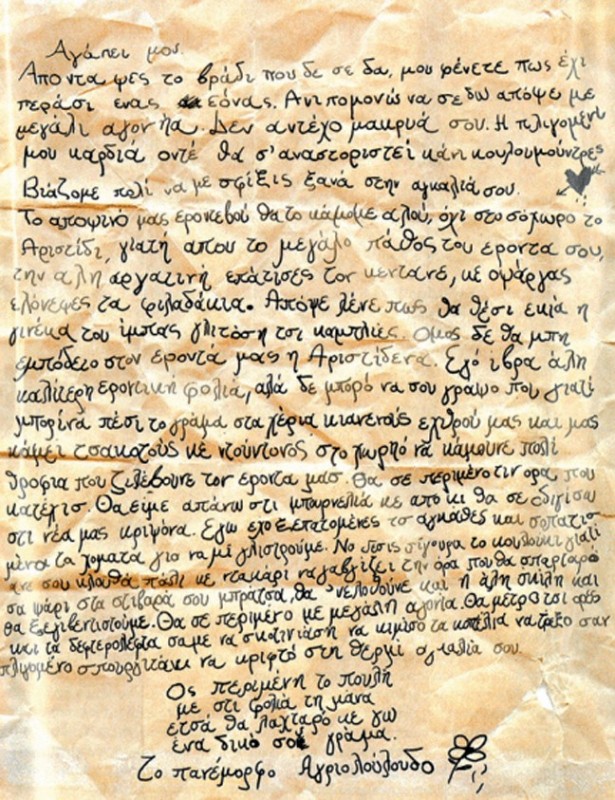 Αγάπει μου.
Απο ντα ψες το βράδι που δε σε δα, μου φένετε πως έχι
περάσι ενας εόνας. Ανιπομονώ να σε δω απόψε με
μεγάλι αγονηα. Δεν αντέχο μακρυά σου. Η πλιγομένι
μου καρδιά οντέ θα σ'αναστοριστεί κάνι κουλουμούντρες
Βιάζομε πολί να με σφίξις ξανά στην αγκαλιά σου.
Το αποψινό μας εροντεβού θα το κάμομε αλού, όχι στο σόχωρο το
Αριστίδι, γιατή απου το μεγάλο πάθος του εροντα σου,
την αλη αργατινή επάτισες τον μεντανέ, κε οψάργας
ελόνεψες τα φιλαδάκια. Απόψε λένε πως θα θέσι εκιά η
γινέκα του ίμπας γλιτόση τσι καμπλιές. Ομος δε θα μπη
εμπόδειο στον εροντά μας η Αριστίδενα. Εγό ίβρα άλη
καλίτερη εροντική φολιά, αλά δε μπορό να σου γραψο που γιατί
μπορίνα πέσι το γράμα στα χέρια κιανενούς εχθρού μας και μας
κάμει τσακοτούς κε ντουντονός στο χωργιό να κάμουνε πολί
θροφια που ζιλέβουνε τον εροντα μας. Θα σε περιμένο τιν ορα που
κατέχις. Θα είμε απάνω στι μπαρνελιά κε απο κι θα σε οδιγίσω
στι νέα μας κριψόνα. Εγω εχο ξεπατομένες τσ αγκάθες και σοπατισ
μένα τα χοματα για να μι γλιστρούμε. Νο δεσις σίγουρα το κουλούκι γιατί
ανε σου κλουθά πάλι κε ντακάρι να γαβγίζει την όρα που θα σπαρταρό
σα ψάρι στα στιβαρά σου μπράτσα, θα νελοθούνε και η άλη σκίλη και
θα ξεγιβεντιστούμε. Θα σε περιμένο με μεγάλη αγονία. Θα μετρό τσι ορες
και τα δεφτερολεφτα σαμε να σκοτινιάση να κιμίσο τα κοπέλια να τρέξο σαν
πλιγομένο σπουργιτάκι να κριφτό στη θερμί αγκαλιά σου.
Ος περιμένη το πουλή
με στι φολιά τη μάνα
ετσά θα λαχταρό κε γω
ένα δικό σου γράμα.
Το πανέμορφο Αγριολούλουδο